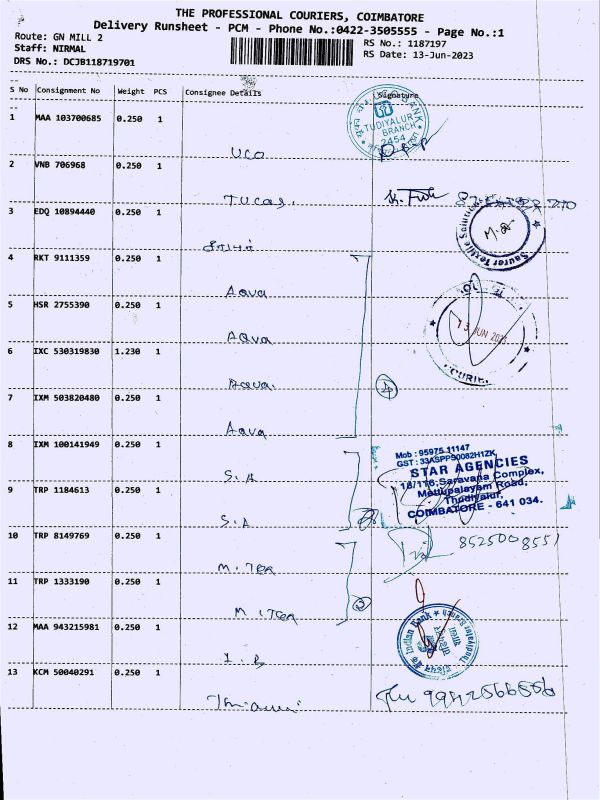 THE PROFESSIONAL COURIERS, COIMBATORE
Delivery Runsheet - PCM - Phone No.:0422-3505555 - Page No.:1
Route: GN MILL 2
RS No.: 1187197
Staff: NIRMAL
RS Date: 13-Jun-2023
DRS No.: DCJB118719701
S No Consignment No Weight PCS Consignee Details Signature
1 MAA 103700685 0.250 1
TUDIYALUR
BRANCH
2454
UCO
2 VNB 706968 0.250 1
3 EDQ 10894440 0.250 1
Saurer Textile Solutions
4 RKT 9111359 0.250 1
Aqua
5 HSR 2755390 0.250 1
Aqua
13 JUN
6 IXC 530319830 1.230 1
Aqua
4
7 IXM 503820480 0.250 1
Aqua
8 IXM 100141949 0.250 1
Mob : 95975 11147
GST : 33ASPPS0082H1ZK
STAR AGENCIES
16/116, Saravana Complex,
Mettupalayam Road,
Thudiyalur,
COIMBATORE - 641 034.
S.A
9 TRP 1184613 0.250 1
S.A
10 TRP 8149769 0.250 1
8525008551
11 TRP 1333190 0.250 1
2
12 MAA 943215981 0.250 1
Indian Bank
I.B
13 KCM 50040291 0.250 1